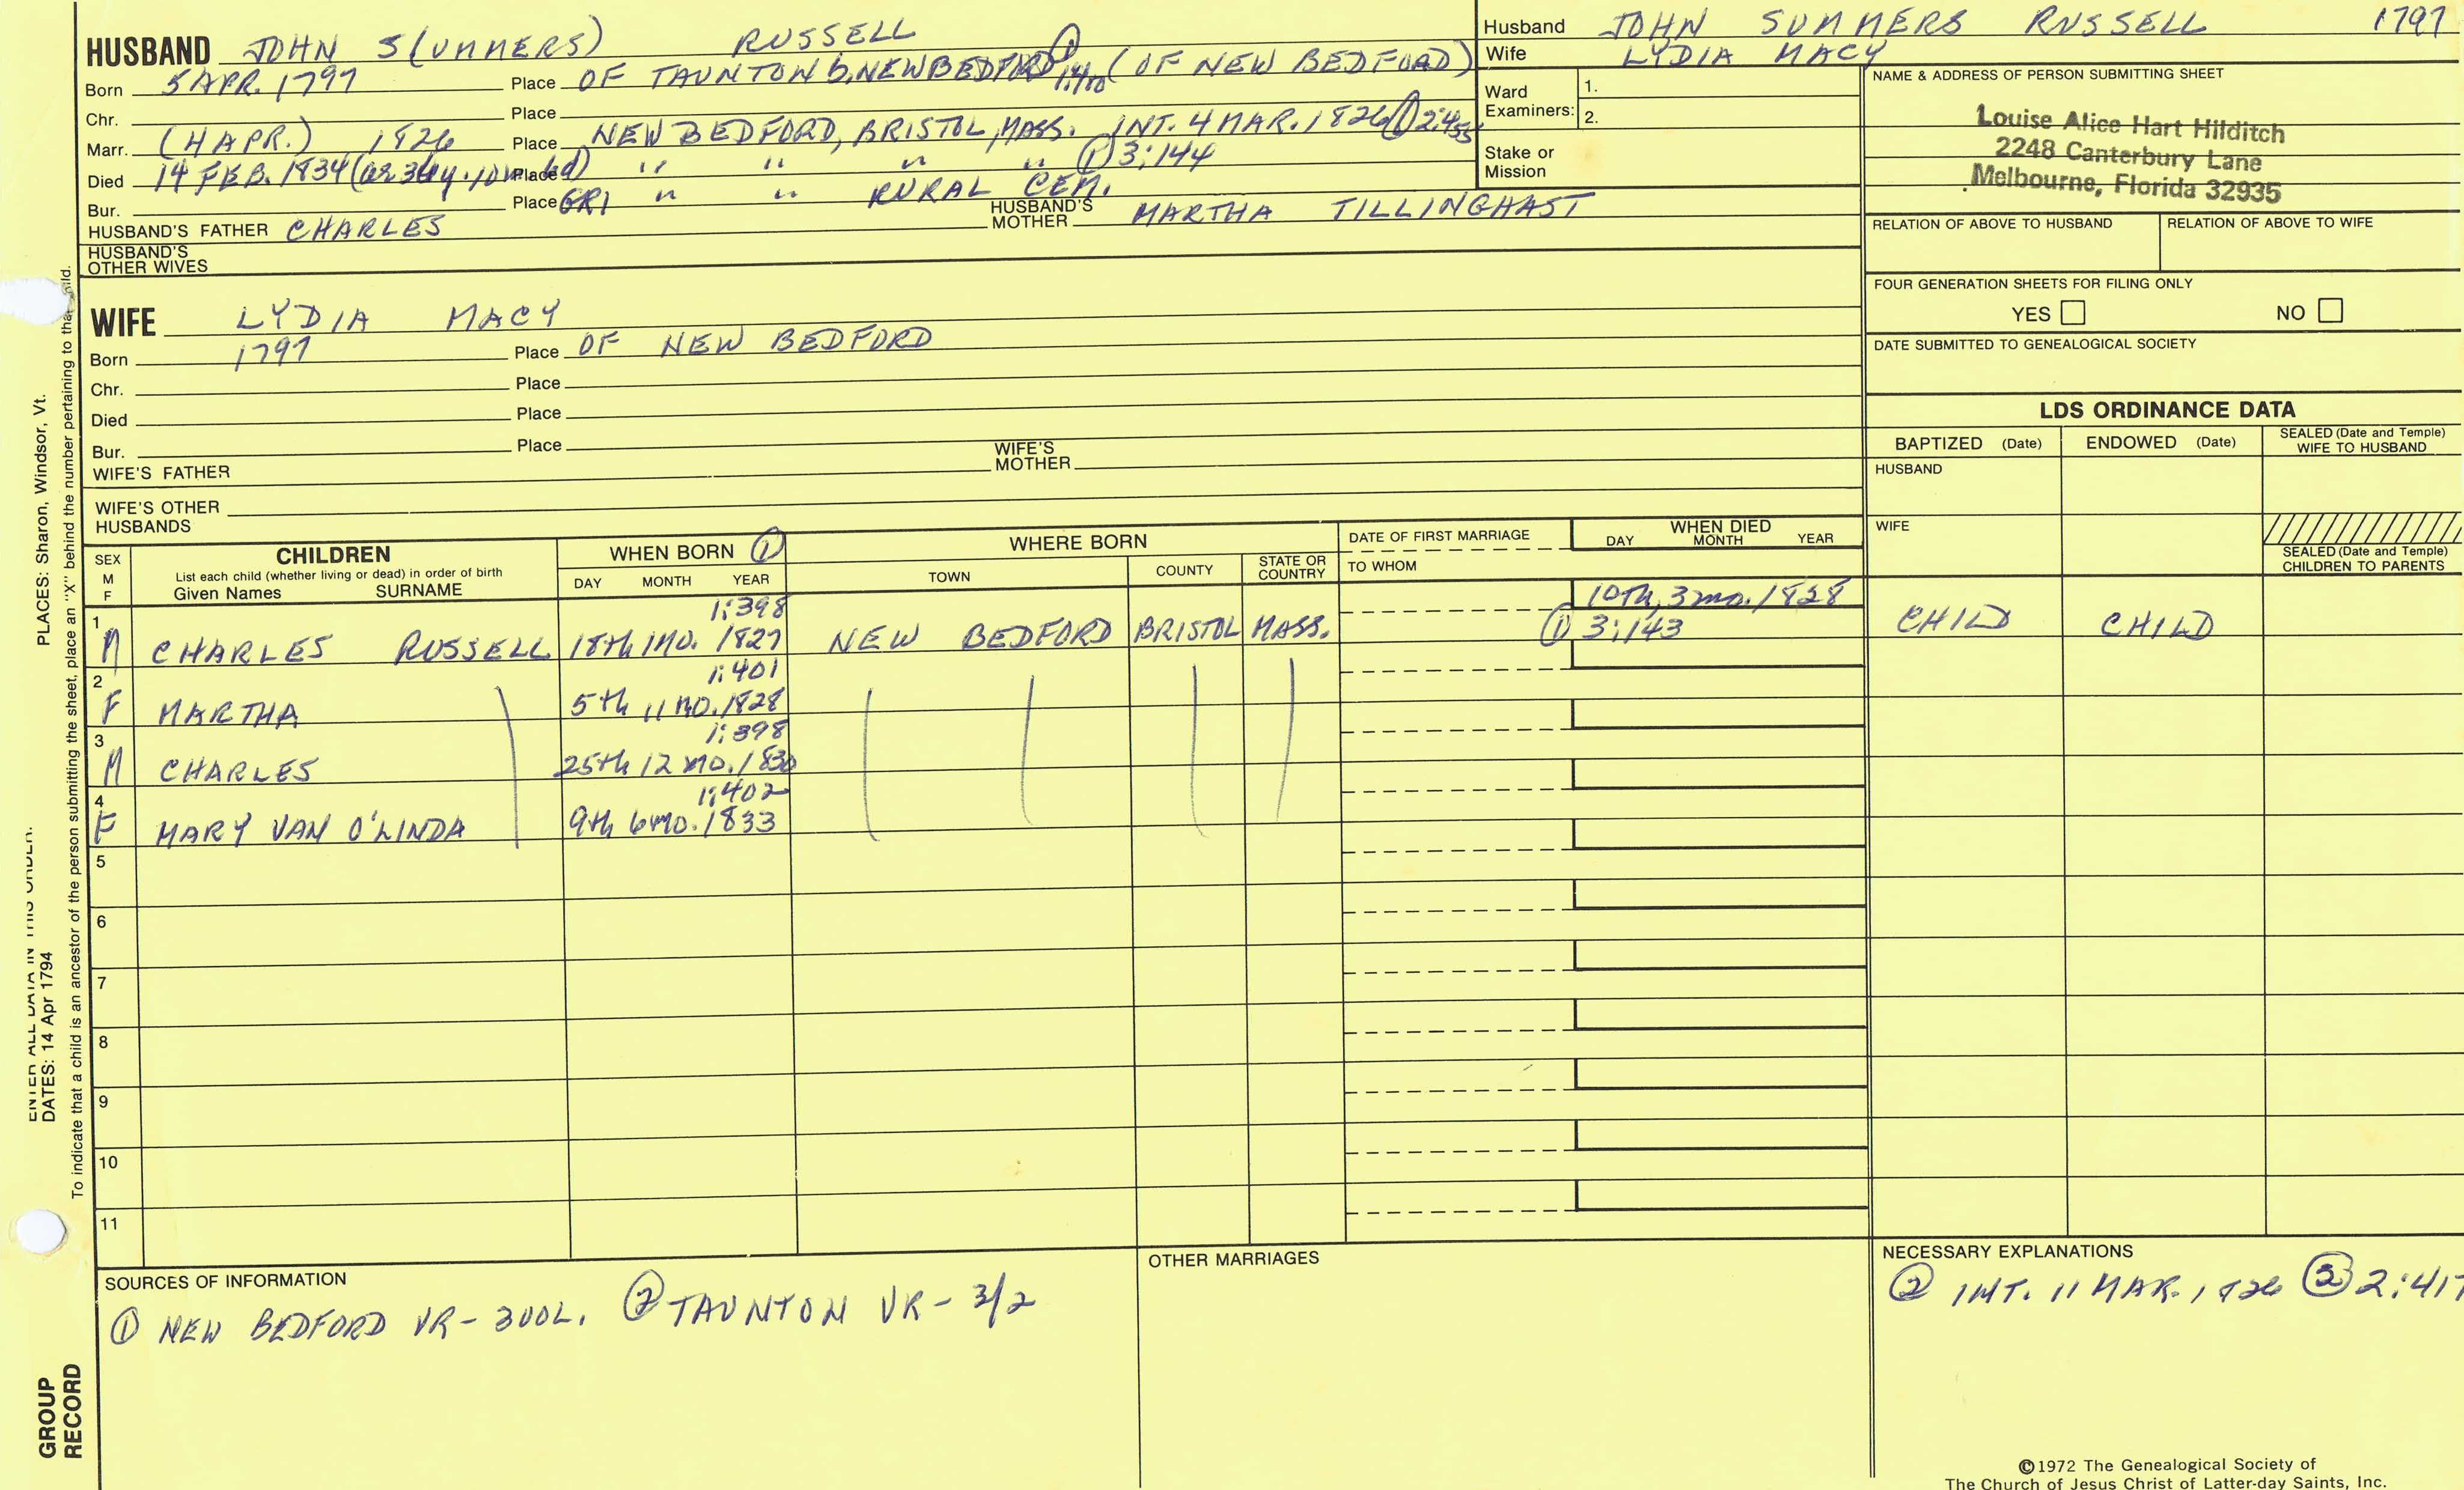 HUSBAND JOHN S(UMMERS) RUSSELL
Born 5 APR. 1797 Place OF TAUNTON b. NEW BEDFORD ① 1:400 (OF NEW BEDFORD)
Chr. Place
Marr. (4 APR.) 1826 Place NEW BEDFORD, BRISTOL, MASS. INT. 4 MAR. 1826 ① 2:455
Died 14 FEB. 1834 Place " " " " ① 3:144
Bur. Place GR1 " " RURAL CEM.
HUSBAND'S FATHER CHARLES HUSBAND'S MOTHER MARTHA TILLINGHAST
HUSBAND'S OTHER WIVES
Husband JOHN SUMMERS RUSSELL 1797
Wife LYDIA MACY
Ward Examiners: 1.
2.
Stake or Mission
NAME & ADDRESS OF PERSON SUBMITTING SHEET
Louise Alice Hart Hilditch
2248 Canterbury Lane
Melbourne, Florida 32935
RELATION OF ABOVE TO HUSBAND RELATION OF ABOVE TO WIFE
FOUR GENERATION SHEETS FOR FILING ONLY
YES NO
DATE SUBMITTED TO GENEALOGICAL SOCIETY
WIFE LYDIA MACY
Born 1797 Place OF NEW BEDFORD
Chr. Place
Died Place
Bur. Place
WIFE'S FATHER WIFE'S MOTHER
WIFE'S OTHER HUSBANDS
LDS ORDINANCE DATA
BAPTIZED (Date) ENDOWED (Date) SEALED (Date and Temple) WIFE TO HUSBAND
HUSBAND
WIFE
SEALED (Date and Temple) CHILDREN TO PARENTS
SEX M F CHILDREN WHEN BORN ① WHERE BORN DATE OF FIRST MARRIAGE WHEN DIED
List each child (whether living or dead) in order of birth
Given Names SURNAME DAY MONTH YEAR TOWN COUNTY STATE OR COUNTRY TO WHOM DAY MONTH YEAR
1 1:398 10th, 3 mo. 1828
M CHARLES RUSSELL 18th 1 MO. 1827 NEW BEDFORD BRISTOL MASS. ① 3:143 CHILD CHILD
2 1:401
F MARTHA 5th 11 MO. 1828
3 1:398
M CHARLES 25th 12 MO. 1830
4 1:402
F MARY VAN O'LINDA 9th 6 MO. 1833
5
6
7
8
9
10
11
SOURCES OF INFORMATION
① NEW BEDFORD VR - 3 VOL. ② TAUNTON VR - 3/2
OTHER MARRIAGES
NECESSARY EXPLANATIONS
② INT. 11 MAR. 1826 ② 2:417
©1972 The Genealogical Society of
The Church of Jesus Christ of Latter-day Saints, Inc.
PLACES: Sharon, Windsor, Vt.
To indicate that a child is an ancestor of the person submitting the sheet, place an "X" behind the number pertaining to that child.
ENTER ALL DATA IN THIS ORDER:
DATES: 14 Apr 1794
GROUP
RECORD